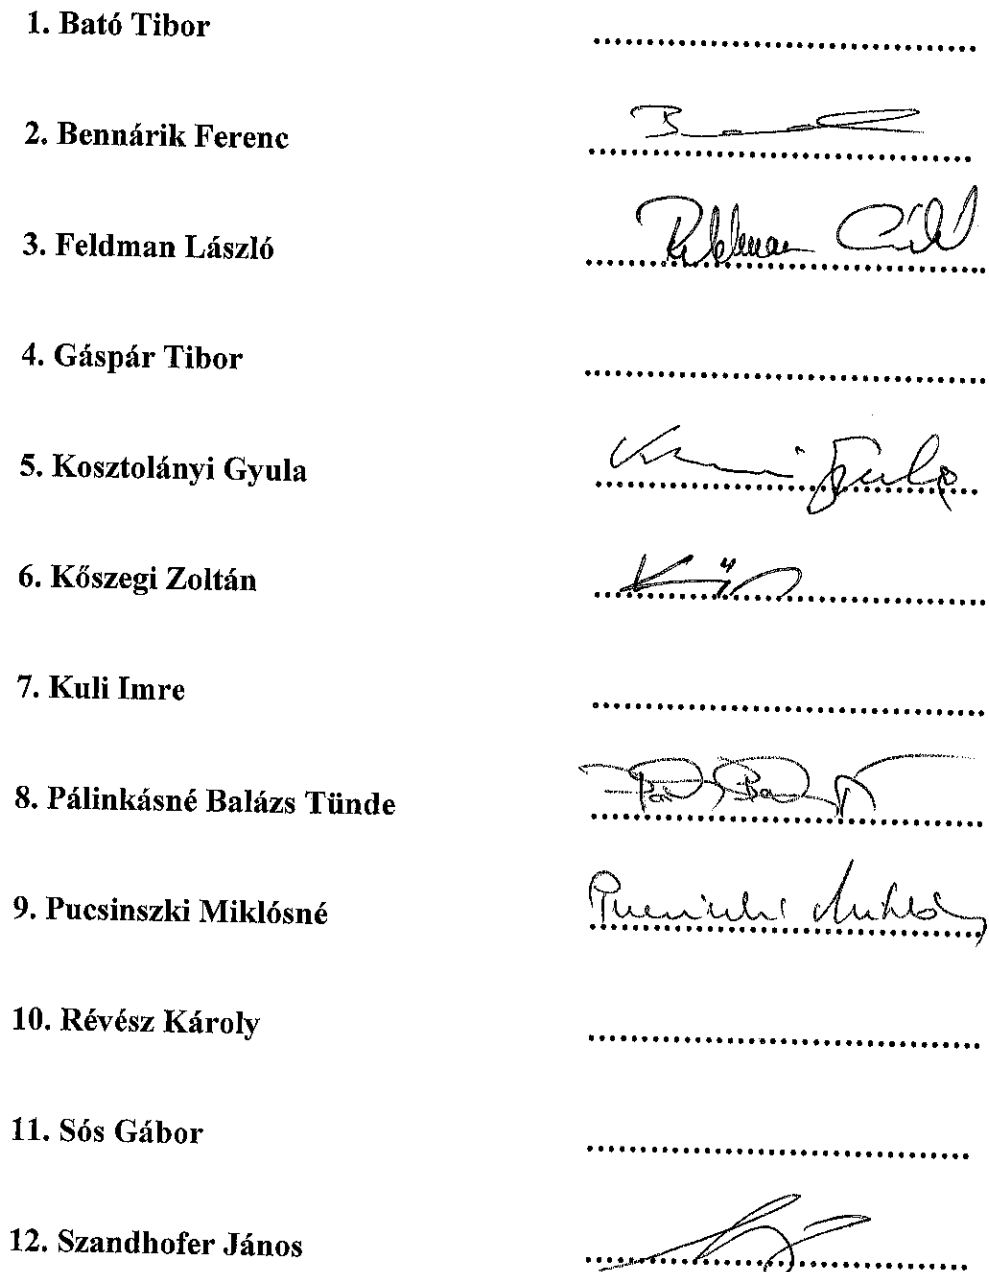 1. Bató Tibor ................................
2. Bennárik Ferenc ................................
3. Feldman László ................................
4. Gáspár Tibor ................................
5. Kosztolányi Gyula ................................
6. Kőszegi Zoltán ................................
7. Kuli Imre ................................
8. Pálinkásné Balázs Tünde ................................
9. Pucsinszki Miklósné ................................
10. Révész Károly ................................
11. Sós Gábor ................................
12. Szandhofer János ................................